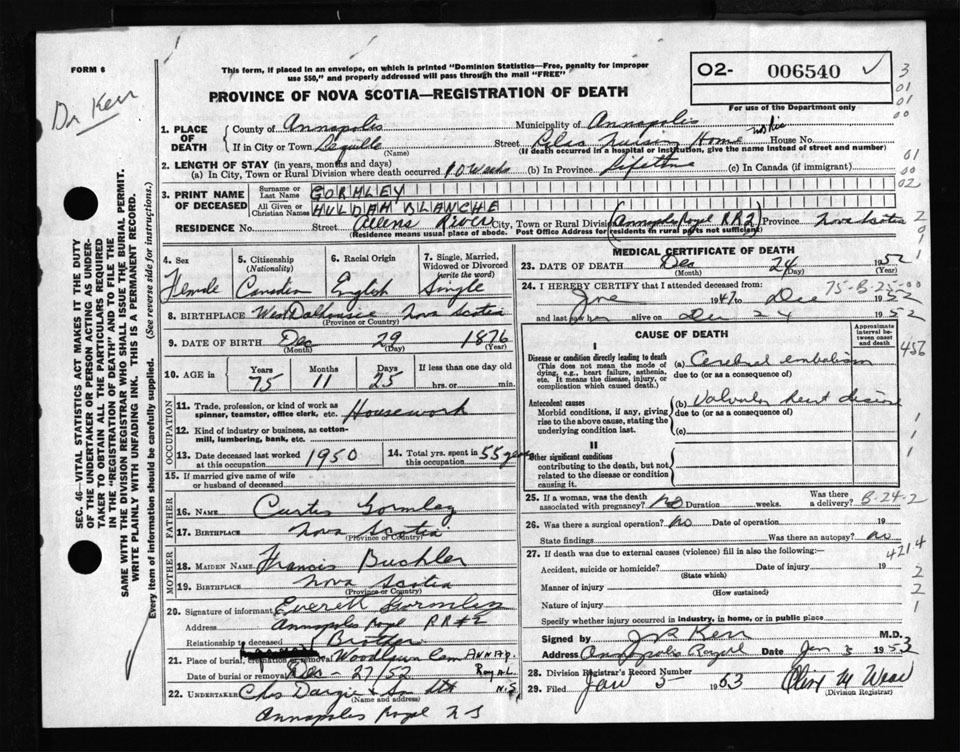 FORM 6
This form, if placed in an envelope, on which is printed "Dominion Statistics—Free, penalty for improper
use $50," and properly addressed will pass through the mail "FREE"
PROVINCE OF NOVA SCOTIA—REGISTRATION OF DEATH
O2- 006540 ✓
For use of the Department only
3
01
01
00
Dr Kerr
1. PLACE OF DEATH
County of Annapolis Municipality of Annapolis
If in City or Town Lequille (Name) Street Nursing Home House No.
(If death occurred in a hospital or institution, give the name instead of street and number)
01
00
02
2. LENGTH OF STAY (in years, months and days)
(a) In City, Town or Rural Division where death occurred 10 Weeks (b) In Province Lifetime (c) In Canada (if immigrant)
3. PRINT NAME OF DECEASED
Surname or Last Name GORMLEY
All Given or Christian Names HULDAH BLANCHE
RESIDENCE No. Street Allens River City, Town or Rural Division (Annapolis Royal RR2) Province Nova Scotia
(Residence means usual place of abode. Post Office Address for residents in rural parts not sufficient)
SEC. 46—VITAL STATISTICS ACT MAKES IT THE DUTY
OF THE UNDERTAKER OR PERSON ACTING AS UNDER-
TAKER TO OBTAIN ALL THE PARTICULARS REQUIRED
IN THE "REGISTRATION OF DEATH" AND TO FILE THE
SAME WITH THE DIVISION REGISTRAR WHO SHALL ISSUE THE BURIAL PERMIT.
WRITE PLAINLY WITH UNFADING INK. THIS IS A PERMANENT RECORD.
Every item of information should be carefully supplied. (See reverse side for instructions.)
4. Sex Female
5. Citizenship (Nationality) Canadian
6. Racial Origin English
7. Single, Married, Widowed or Divorced (write the word) Single
8. BIRTHPLACE West Dalhousie Nova Scotia
(Province or Country)
9. DATE OF BIRTH Dec (Month) 29 (Day) 1876 (Year)
10. AGE in Years 75 Months 11 Days 25 If less than one day old hrs. or min.
OCCUPATION
11. Trade, profession, or kind of work as spinner, teamster, office clerk, etc. Housework
12. Kind of industry or business, as cotton-mill, lumbering, bank, etc.
13. Date deceased last worked at this occupation 1950
14. Total yrs. spent in this occupation 55 years
15. If married give name of wife or husband of deceased
FATHER
16. NAME Curtis Gormley
17. BIRTHPLACE Nova Scotia
(Province or Country)
MOTHER
18. MAIDEN NAME Francis Buchler
19. BIRTHPLACE Nova Scotia
(Province or Country)
20. Signature of informant Everett Gormley
Address Annapolis Royal RR#2
Relationship to deceased Brother
21. Place of burial, cremation or removal Woodlawn Cem ANNAP. Royal N.S
Date of burial or removal Dec - 27/52
22. UNDERTAKER Chs Dargie & Son Ltd
(Name and address)
Annapolis Royal N S
MEDICAL CERTIFICATE OF DEATH
23. DATE OF DEATH Dec (Month) 24 (Day) 1952 (Year)
24. I HEREBY CERTIFY that I attended deceased from:
75-B-25-00
1947 to Dec 1952
and last saw her alive on Dec 24 1952
CAUSE OF DEATH
Approximate interval between onset and death
I
Disease or condition directly leading to death
(This does not mean the mode of dying, e.g., heart failure, asthenia, etc. It means the disease, injury, or complication which caused death.)
(a) Cerebral embolism
due to (or as a consequence of)
Antecedent causes
Morbid conditions, if any, giving rise to the above cause, stating the underlying condition last.
(b) Valvular heart disease
due to (or as a consequence of)
(c)
II
Other significant conditions
contributing to the death, but not related to the disease or condition causing it.
25. If a woman, was the death associated with pregnancy? No Duration weeks. Was there a delivery? B-24-2
26. Was there a surgical operation? no Date of operation 19
State findings Was there an autopsy? no
27. If death was due to external causes (violence) fill in also the following:—
4214
Accident, suicide or homicide? (State which) Date of injury 19
Manner of injury (How sustained)
Nature of injury
Specify whether injury occurred in industry, in home, or in public place
Signed by Kerr M.D.
Address Annapolis Royal Date Jan 3 1953
28. Division Registrar's Record Number
29. Filed Jan 5 1953
(Division Registrar)